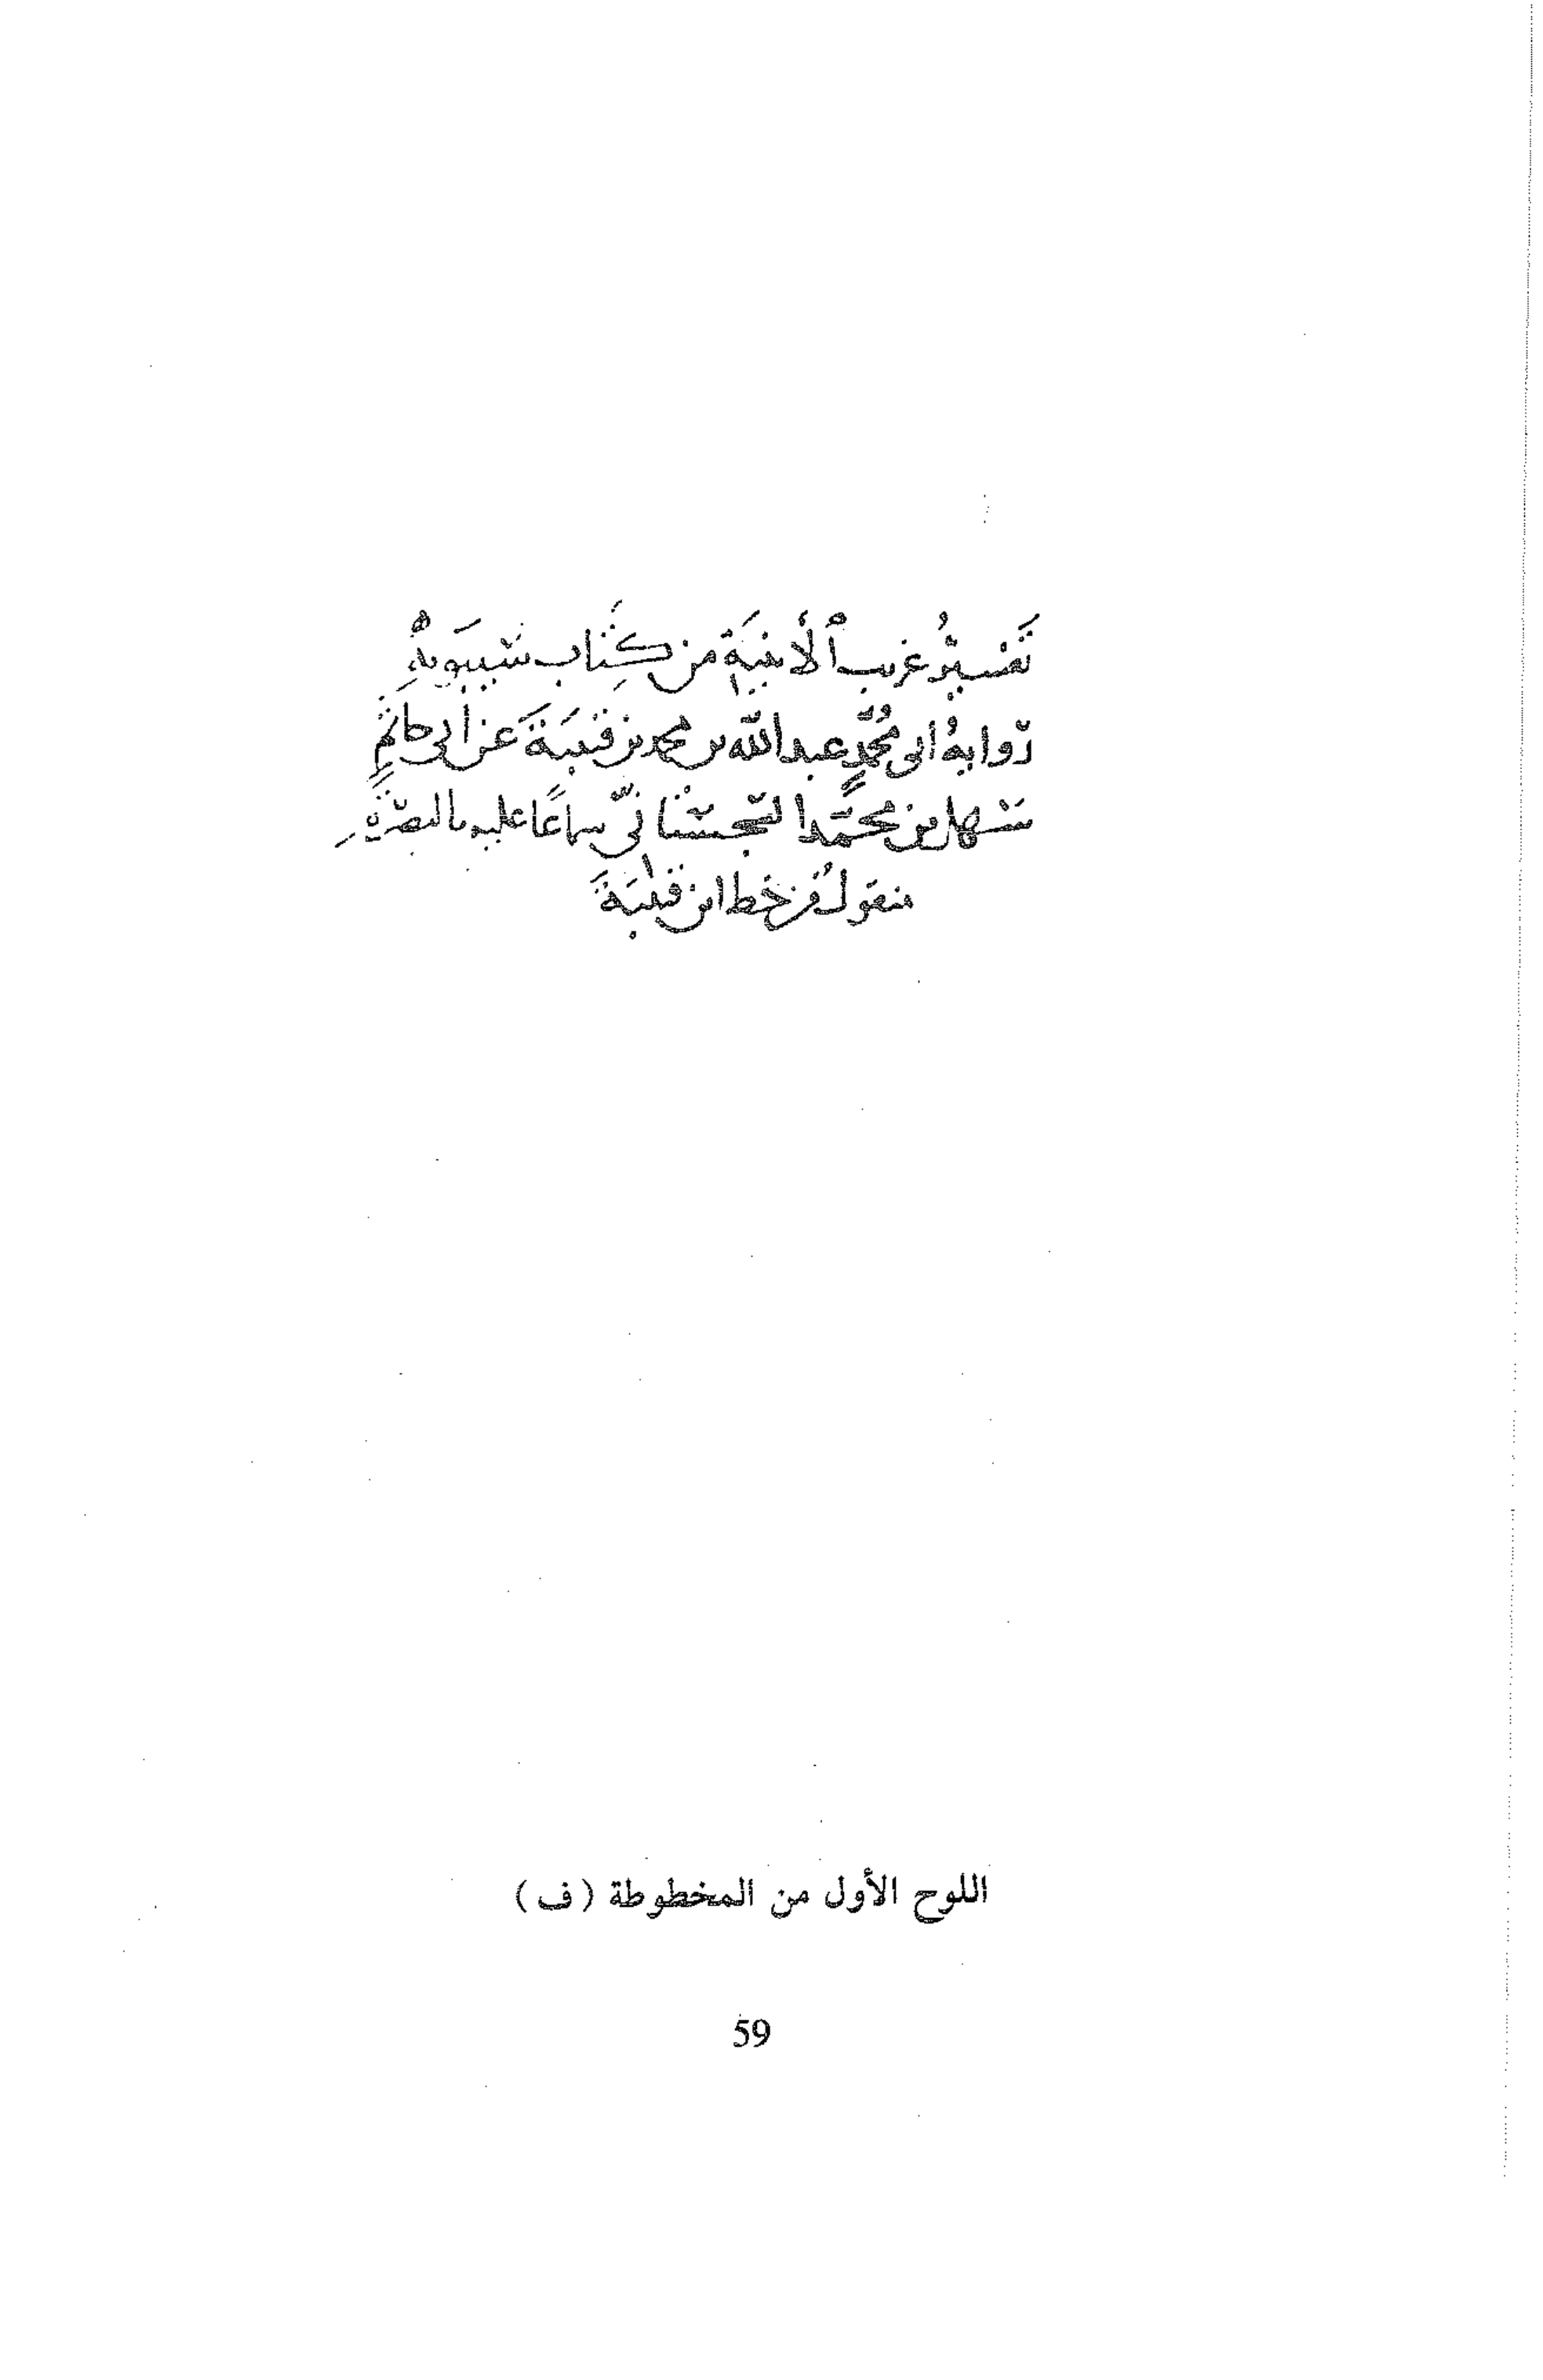 تَفسيرُ غريب ٱلأَبنيَةِ من كِتَاب سيبَويهِ
روايةُ ابى مُحمَّدٍ عبد الله بن محمد بن قتيبَةَ عن أبى حاتمٍ
سهل بن محمّد السّجستانىّ سماعًا عليه بالبصرَةِ
منقولُ من خط ابن قتيبَةَ
اللوح الأول من المخطوطة ( ف )
59